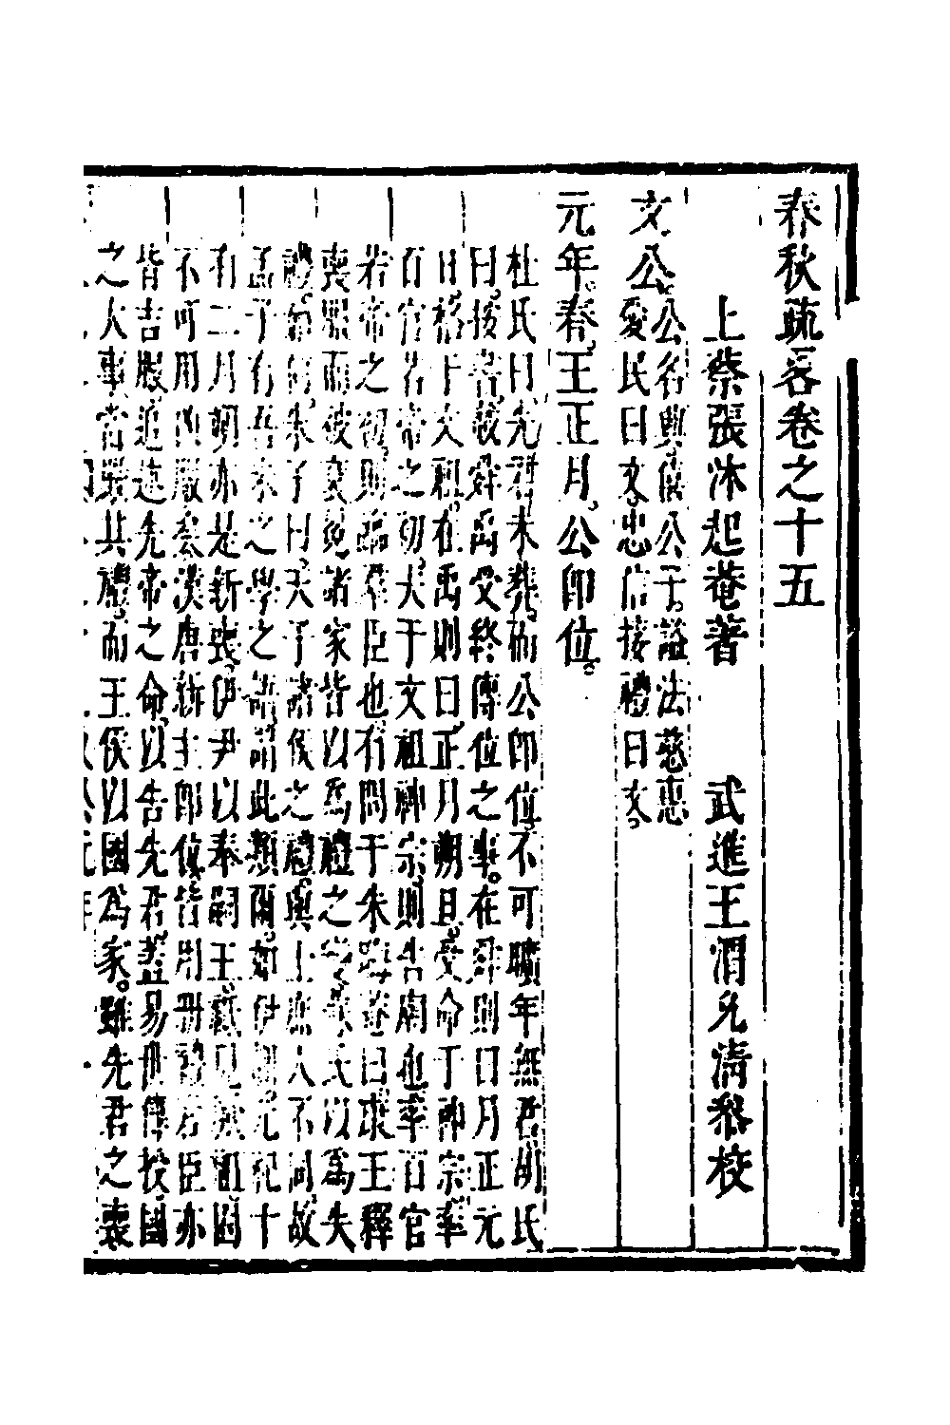 春秋疏畧卷之十五
上蔡張沐起菴著 武進王渭兒淸黎校
文公
公名興僖公子。謚法慈惠
愛民曰文。忠信接禮曰文。
元年。春。王正月。公卽位。
杜氏曰。先君未葬。而公卽位。不可曠年無君。胡氏
曰。按書。載舜禹受終傳位之事。在舜則曰月正元
日。格于文祖。在禹則曰。正月朔旦。受命于神宗。率
百官若帝之初。夫于文祖神宗則告廟也。率百官
若帝之初。則臨羣臣也。有問于朱晦菴曰。康王釋
喪服而被袞冕。諸家皆以爲禮之變。蘇氏以爲失
禮。如何。朱子曰。天子諸侯之禮。與士庶人不同。故
孟子有吾未之學之語。謂此類爾。如伊訓元祀十
有二月朔。亦是新喪。伊尹以奉嗣王。祗見厥祖。固
不可用凶服矣。漢唐新主卽位。皆用冊禮。君臣亦
皆吉服。追述先帝之命。以告先君。蓋易世傳授。國
之大事。當嚴其禮。而王侯以國爲家。雖先君之喪